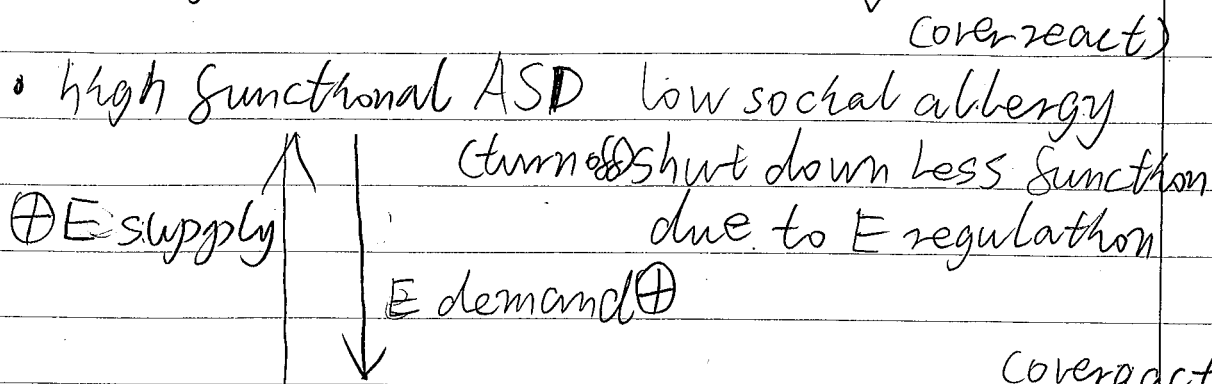 (overreact)
• high functional ASD low social allergy
(turn off) shut down less function
⊕E supply due to E regulation
E demand⊕
(overreact